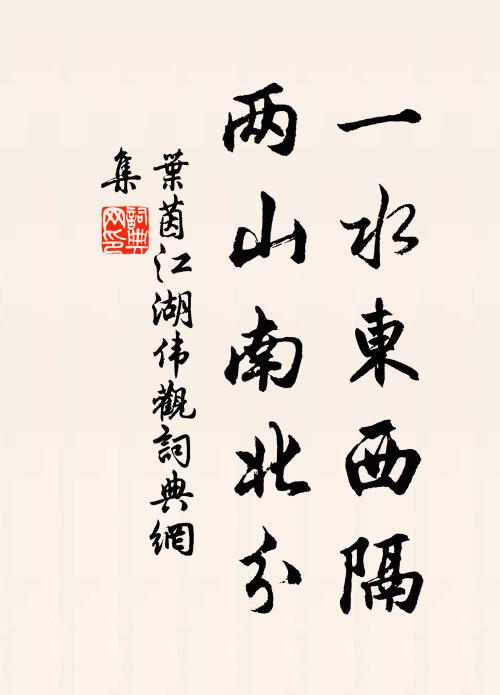 一水東西隔
两山南北分
葉茵江湖伟觀詞典網
集
詞典网印